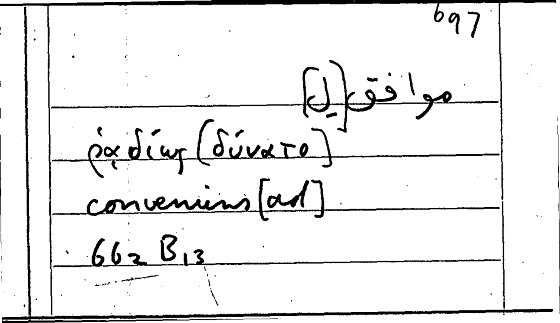 697
موافق [ل]
ῥᾳδίως [δύνατο]
conveniens [ad]
662 B13